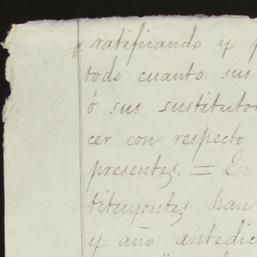 ratificando y
todo cuanto sus
ó sus sustituto
cer con respecto
presentes. = En
tituyentes han
y año antedic